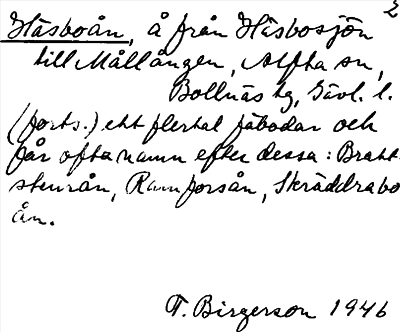 2
Häsboån, å från Häsbosjön
till Mållången, Alfta sn,
Bollnäs tg, Gävl. l.
(forts.) ett flertal fäbodar och
får ofta namn efter dessa: Bratt-
stenrån, Ramforsån, Skräddrabo-
ån.
T. Birgerson 1946